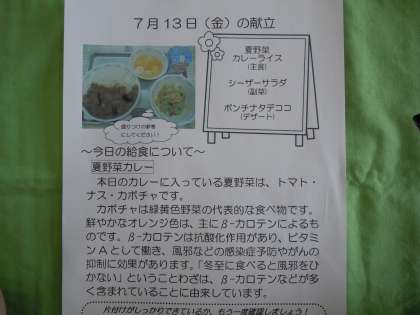 ７月１３日（金）の献立
夏野菜
カレーライス
（主食）
シーザーサラダ
（副菜）
ポンチナタデココ
（デザート）
盛りつけの参考
にしてください！
～今日の給食について～
夏野菜カレー
本日のカレーに入っている夏野菜は、トマト・
ナス・カボチャです。
カボチャは緑黄色野菜の代表的な食べ物です。
鮮やかなオレンジ色は、主にβ-カロテンによるも
のです。β-カロテンは抗酸化作用があり、ビタミ
ンＡとして働き、風邪などの感染症予防やがんの
抑制に効果があります。「冬至に食べると風邪をひ
かない」ということわざは、β-カロテンなどが多
く含まれていることに由来しています。
片付けがしっかりできているか、もう一度確認しましょう！